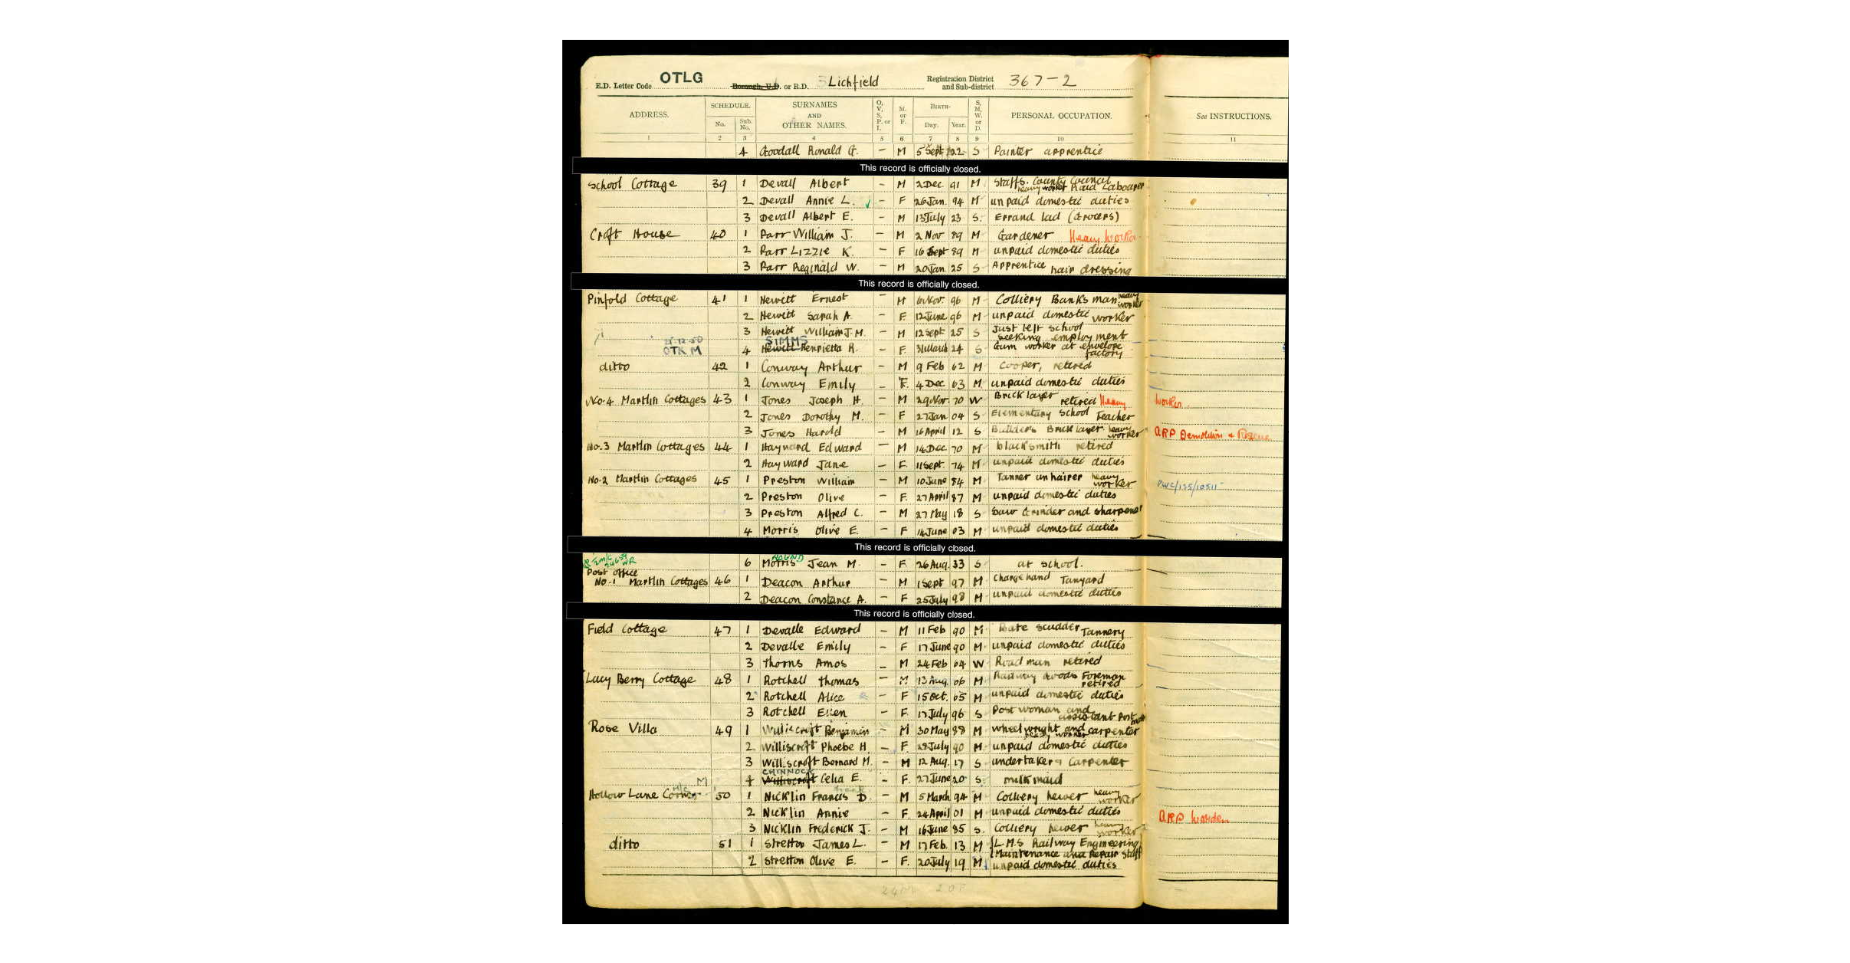 E.D. Letter Code OTLG Borough, U.D. or R.D. Lichfield Registration District and Sub-district 367-2
ADDRESS. SCHEDULE. No. Sub. No. SURNAMES AND OTHER NAMES. O. V. S. P. or I. M. or F. BIRTH- Day. Year. S. M. W. or D. PERSONAL OCCUPATION. See INSTRUCTIONS.
1 2 3 4 5 6 7 8 9 10 11
4 Goodall Ronald G. - M 5 Sept 22 S Painter apprentice
This record is officially closed.
School Cottage 39 1 Devall Albert - M 2 Dec 91 M Staffs. County Council heavy worker Road Labourer
2 Devall Annie L. - F 26 Jan 94 M unpaid domestic duties
3 Devall Albert E. - M 13 July 23 S. Errand lad (Grocers)
Croft House 40 1 Parr William J. - M 2 Nov 89 M Gardener Heavy Worker
2 Parr Lizzie K. - F 16 Sept 89 M unpaid domestic duties
3 Parr Reginald W. - M 20 Jan 25 S Apprentice hair dressing
This record is officially closed.
Pinfold Cottage 41 1 Hewitt Ernest - M 6 Nov. 96 M Colliery Banks man heavy worker
2 Hewitt Sarah A. - F 12 June 96 M unpaid domestic worker
3 Hewitt William J. M. - M 12 Sept 25 S Just left school seeking employment
OTK M 4 Hewitt SIMMS Henrietta R. - F. March 24 S Gum worker at envelope factory
ditto 42 1 Conway Arthur - M 9 Feb 62 M Cooper, retired
2 Conway Emily - F. 4 Dec 63 M unpaid domestic duties
No. 4 Martlin Cottages 43 1 Jones Joseph H. - M 29 Nov. 70 W Bricklayer retired Heavy Worker
2 Jones Dorothy M. - F 27 Jan 04 S Elementary School Teacher
3 Jones Harold - M 16 April 12 S Builders Bricklayer heavy worker ARP Demolition & Rescue
No. 3 Martlin Cottages 44 1 Hayward Edward - M 14 Dec. 70 M blacksmith retired
2 Hayward Jane - F 11 Sept. 74 M unpaid domestic duties
No. 2 Martlin Cottages 45 1 Preston William - M 10 June 84 M Tanner unhairer heavy worker
2 Preston Olive - F. 27 April 87 M unpaid domestic duties
3 Preston Alfred C. - M 27 May 18 S Saw Grinder and sharpener
4 Morris Olive E. - F 14 June 03 M unpaid domestic duties
This record is officially closed.
6 Morris Jean M - F 26 Aug. 33 S at school.
Post office
No. 1 Martlin Cottages 46 1 Deacon Arthur - M 1 Sept 97 M Chargehand Tanyard
2 Deacon Constance A. - F 25 July 98 M unpaid domestic duties
This record is officially closed.
Field Cottage 47 1 Devalle Edward - M 11 Feb 90 M Bate scudder Tannery
2 Devalle Emily - F 17 June 90 M unpaid domestic duties
3 Thorns Amos - M 24 Feb 64 W Road man retired
Lucy Berry Cottage 48 1 Rotchell Thomas - M 13 Aug. 66 M Railway Goods Foreman retired
2 Rotchell Alice - F 15 Oct. 65 M unpaid domestic duties
3 Rotchell Ellen - F. 17 July 96 S Post woman and assistant Post
Rose Villa 49 1 Williscroft Benjamin - M 30 May 88 M wheelwright and carpenter heavy worker
2 Williscroft Phoebe H. - F. 28 July 90 M unpaid domestic duties
3 Williscroft Bernard M. - M 12 Aug. 17 S undertaker & Carpenter
M 4 Williscroft CHINNOCK Celia E. - F. 27 June 20 S. milkmaid
Hollow Lane Corner 50 1 Nicklin Francis D. - M 5 March 94 M Colliery hewer heavy worker
2 Nicklin Annie - F 24 April 01 M unpaid domestic duties ARP Warden
3 Nicklin Frederick J. - M 16 June 85 S. Colliery hewer heavy worker
ditto 51 1 Stretton James L. - M 17 Feb. 13 M L.M.S Railway Engineering (Maintenance and Repair Staff
2 Stretton Olive E. - F. 20 July 19 M unpaid domestic duties